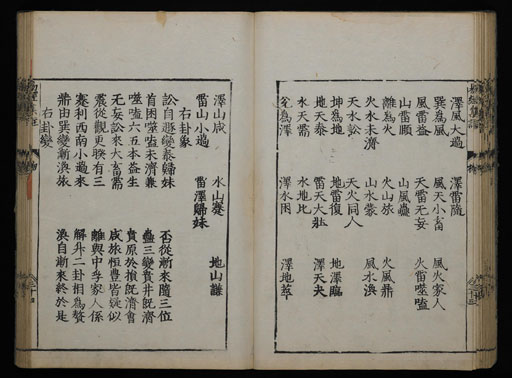 澤風大過　澤雷隨
巽為風　風天小畜　風火家人
風雷益　天雷无妄　火雷噬嗑
山雷頤　山風蠱
離為火　火山旅　火風鼎
火水未濟　山水蒙　風水渙
天水訟　天火同人
坤為地　地雷復　地澤臨
地天泰　雷天大壯　澤天夬
水天需　水地比
兌為澤　澤水困　澤地萃
澤山咸　水山蹇　地山謙
雷山小過　雷澤歸妹
右卦象
訟自遯變泰歸妹　否從漸來隨三位
首困噬嗑未濟兼　蠱三變賁井旣濟
噬嗑六五本益生　賁原於損旣濟會
无妄訟來大畜需　咸旅恒豐皆疑似
晉從觀更睽有三　離與中孚家人係
蹇利西南小過來　解升二卦相為贅
鼎由巽變漸渙旅　渙自漸來終於是
右卦變